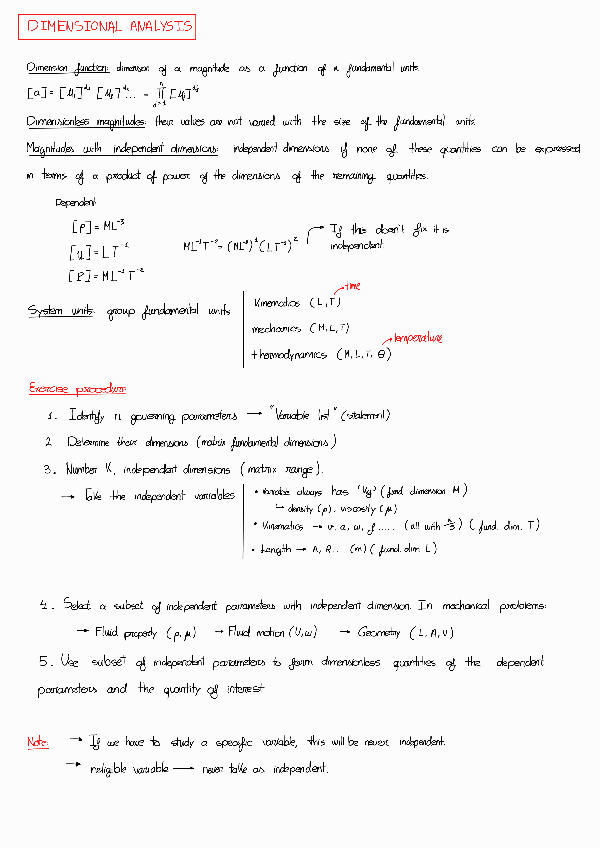 DIMENSIONAL ANALYSIS
Dimension function: dimension of a magnitude as a function of n fundamental units.
[a] = [u₁]^α₁ [u₂]^α₂ ... = ∏ [uⱼ]^αⱼ
Dimensionless magnitudes: their values are not varied with the size of the fundamental units.
Magnitudes with independent dimensions: independent dimensions if none of these quantities can be expressed
in terms of a product of power of the dimensions of the remaining quantities.
Dependent
[ρ] = ML⁻³
[u] = LT⁻¹
[P] = ML⁻¹T⁻²
ML⁻¹T⁻² = (ML⁻³)¹(LT⁻¹)²
→ If this doesn't fix it is
independent.
System units: group fundamental units
Kinematics (L,T)
→ time
mechanics (M,L,T)
→ temperature
thermodynamics (M,L,T,θ)
Exercise procedure:
1. Identify n governing parameters → "Variable list" (statement)
2. Determine their dimensions (matrix fundamental dimensions)
3. Number K, independent dimensions (matrix range).
→ Take the independent variables
• Variable always has "Kg" (fund dimension M)
↳ density (ρ), viscosity (μ)
• Kinematics → v, a, ω, f ..... (all with s) (fund. dim. T)
• Length → A, R... (m) (fund. dim L)
4. Select a subset of independent parameters with independent dimension. In mechanical problems:
→ Fluid property (ρ, μ) → Fluid motion (U, ω) → Geometry (L, A, V)
5. Use subset of independent parameters to form dimensionless quantities of the dependent
parameters and the quantity of interest
Note: → If we have to study a specific variable, this will be never independent.
→ neligible variable → never take as independent.